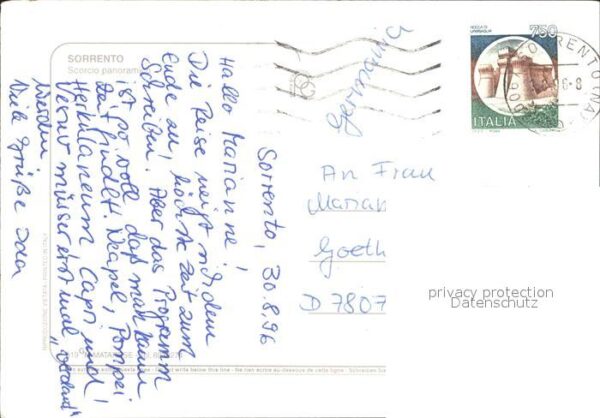 SORRENTO
Scorcio panoram
Sorrento, 30.8.96
Hallo Marianne!
Die Reise neigt sich dem
Ende zu, höchste Zeit zum
Schreiben! Aber das Programm
ist so voll, daß man kaum
Zeit findet. Neapel, Pompei
Herkulaneum Capri und!
Vesuv müssen erst mal „verdaut"
werden.
Viele Grüße
750
ROCCA DI
URBISAGLIA
ITALIA
SORRENTO (NA)
6-8
Germania
An Frau
Marian
Goeth
D 7807
privacy protection
Datenschutz